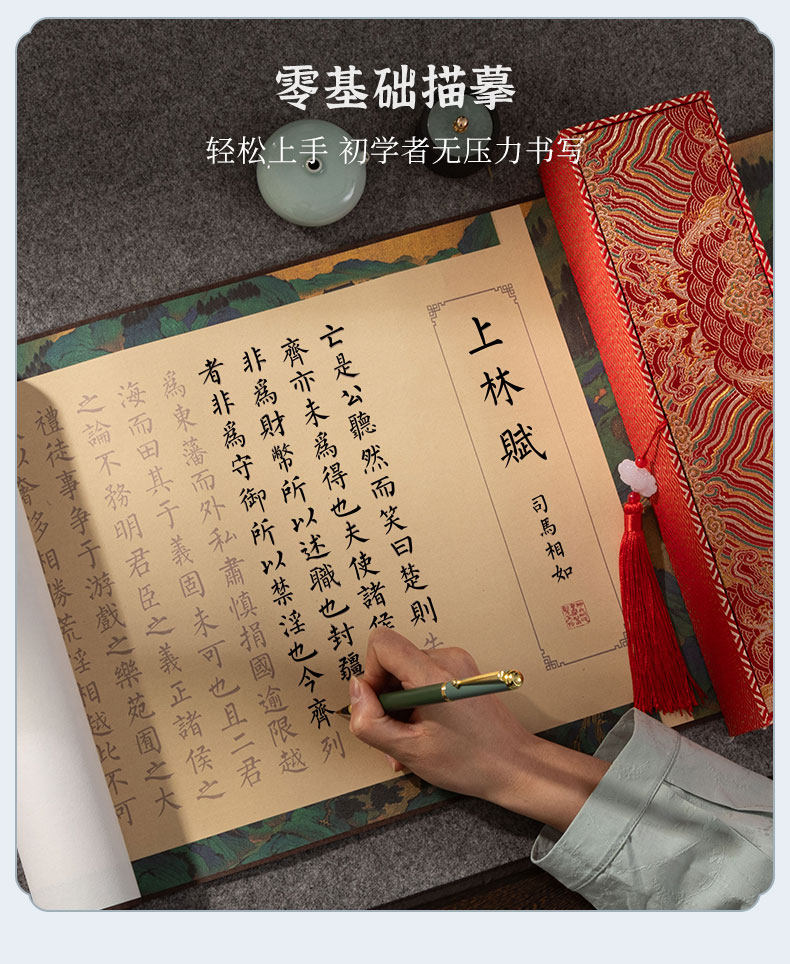 零基础描摹
轻松上手 初学者无压力书写
上林賦
司馬相如
亡是公聽然而笑曰楚則
齊亦未爲得也夫使諸侯
非爲財幣所以述職也封疆
者非爲守御所以禁淫也今齊列
爲東藩而外私肅慎捐國逾限越
海而田其于義固未可也且二君
之論不務明君臣之義正諸侯之
禮徒事争于游戲之樂苑囿之大
以奢侈相勝荒淫相越此不可